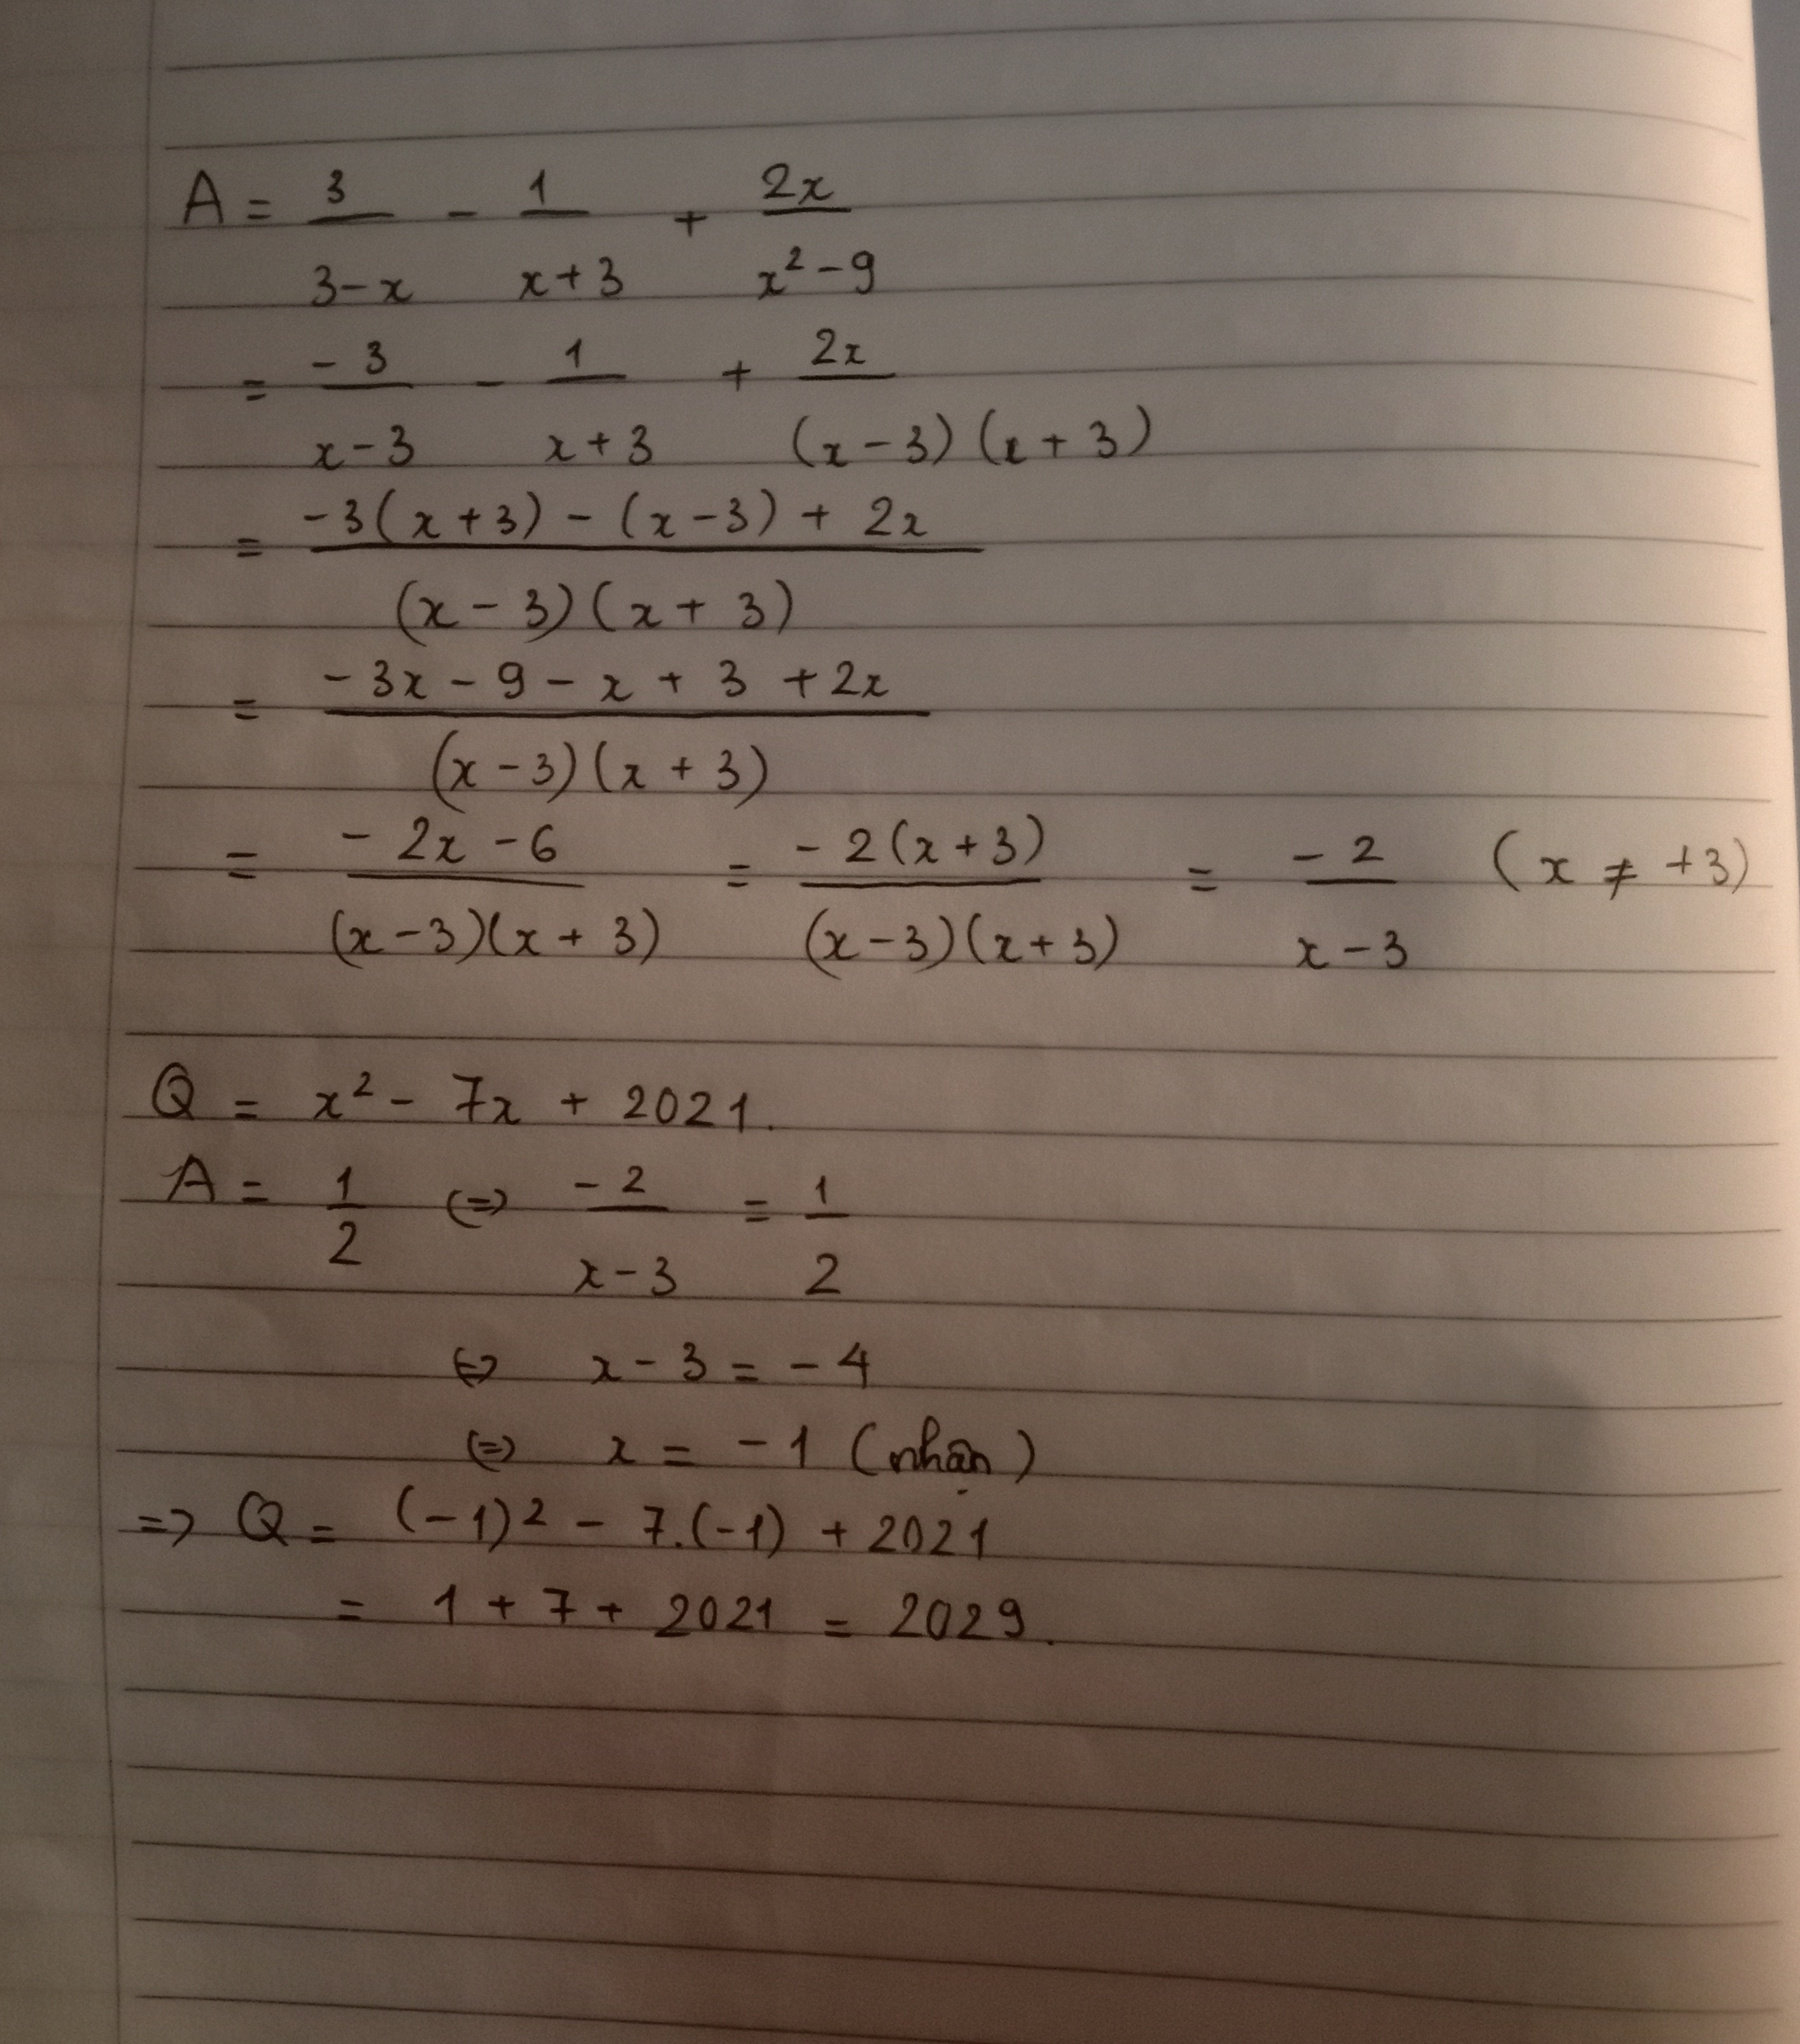 A = 3/(3-x) - 1/(x+3) + 2x/(x²-9)
= -3/(x-3) - 1/(x+3) + 2x/((x-3)(x+3))
= (-3(x+3) - (x-3) + 2x)/((x-3)(x+3))
= (-3x - 9 - x + 3 + 2x)/((x-3)(x+3))
= (-2x - 6)/((x-3)(x+3)) = -2(x+3)/((x-3)(x+3)) = -2/(x-3) (x ≠ +3)
Q = x² - 7x + 2021.
A = 1/2 (=) -2/(x-3) = 1/2
(=) x - 3 = -4
(=) x = -1 (nhận)
=> Q = (-1)² - 7.(-1) + 2021
= 1 + 7 + 2021 = 2029.